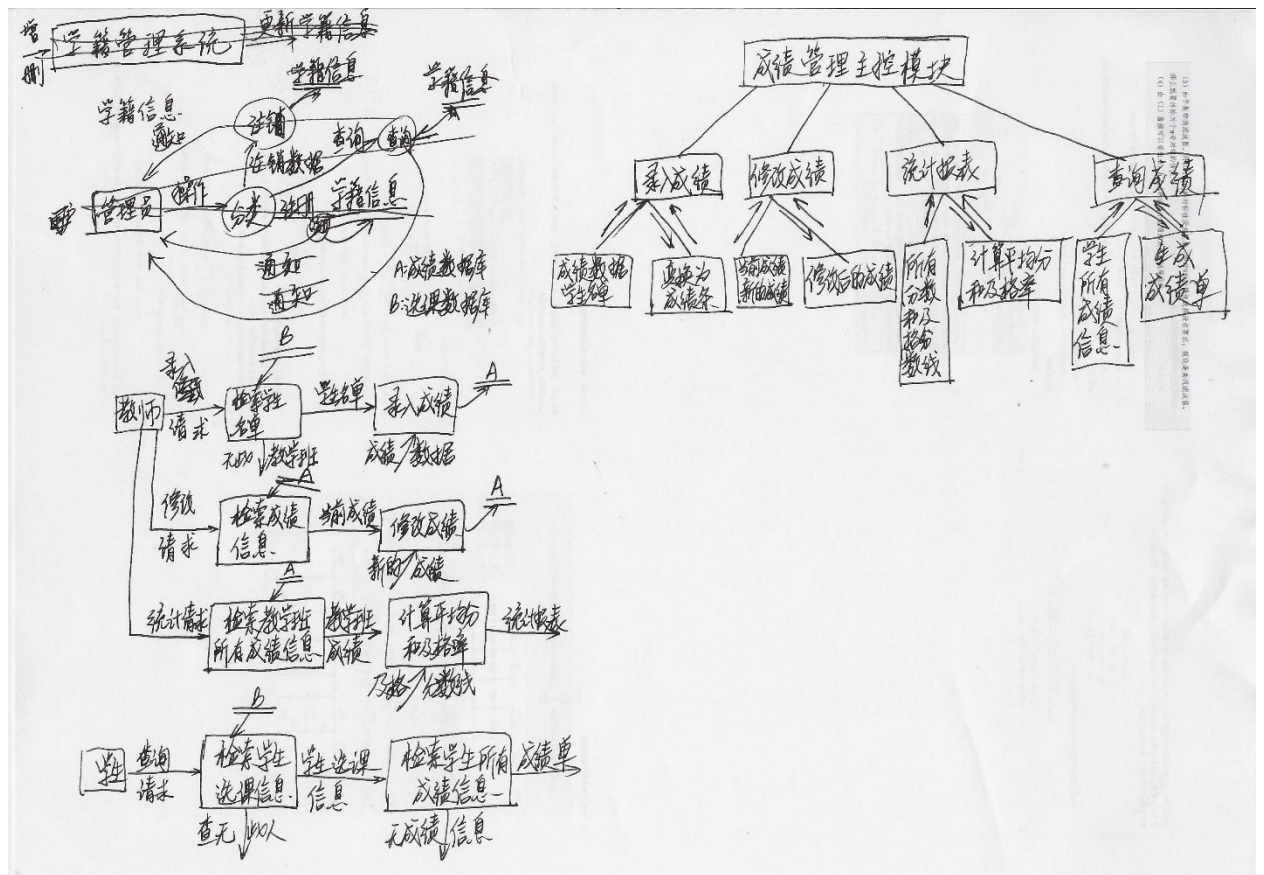 增
删
学籍管理系统
更新学籍信息
学籍信息
学籍信息
学籍信息
通知
注销
查询
查询
注销数据
管理员
操作
分类
注册
学籍信息
通知
通知
A:成绩数据库
B:选课数据库
B
录入
请求
教师
检索学生
名单
学生名单
录入成绩
A
无此教学班
成绩数据
A
修改
请求
检索成绩
信息
当前成绩
修改成绩
A
新的成绩
A
统计请求
检索教学班
所有成绩信息
教学班
成绩
计算平均分
和及格率
统计报表
及格分数线
B
学生
查询
请求
检索学生
选课信息
学生选课
信息
检索学生所有
成绩信息
成绩单
查无此人
无成绩信息
成绩管理主控模块
录入成绩
修改成绩
统计报表
查询成绩
成绩数据
学生名单
变换为
成绩条
当前成绩
新的成绩
修改后的成绩
所有
分数
和及
格分
数线
计算平均分
和及格率
学生
所有
成绩
信息
生成
成绩单